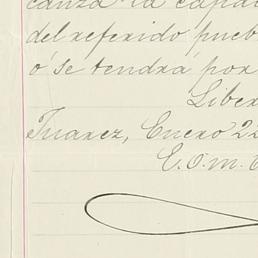 canza la capa
del referido pueb
ó se tendrá por
Liber
Juarez, Enero 22
E. O. M.